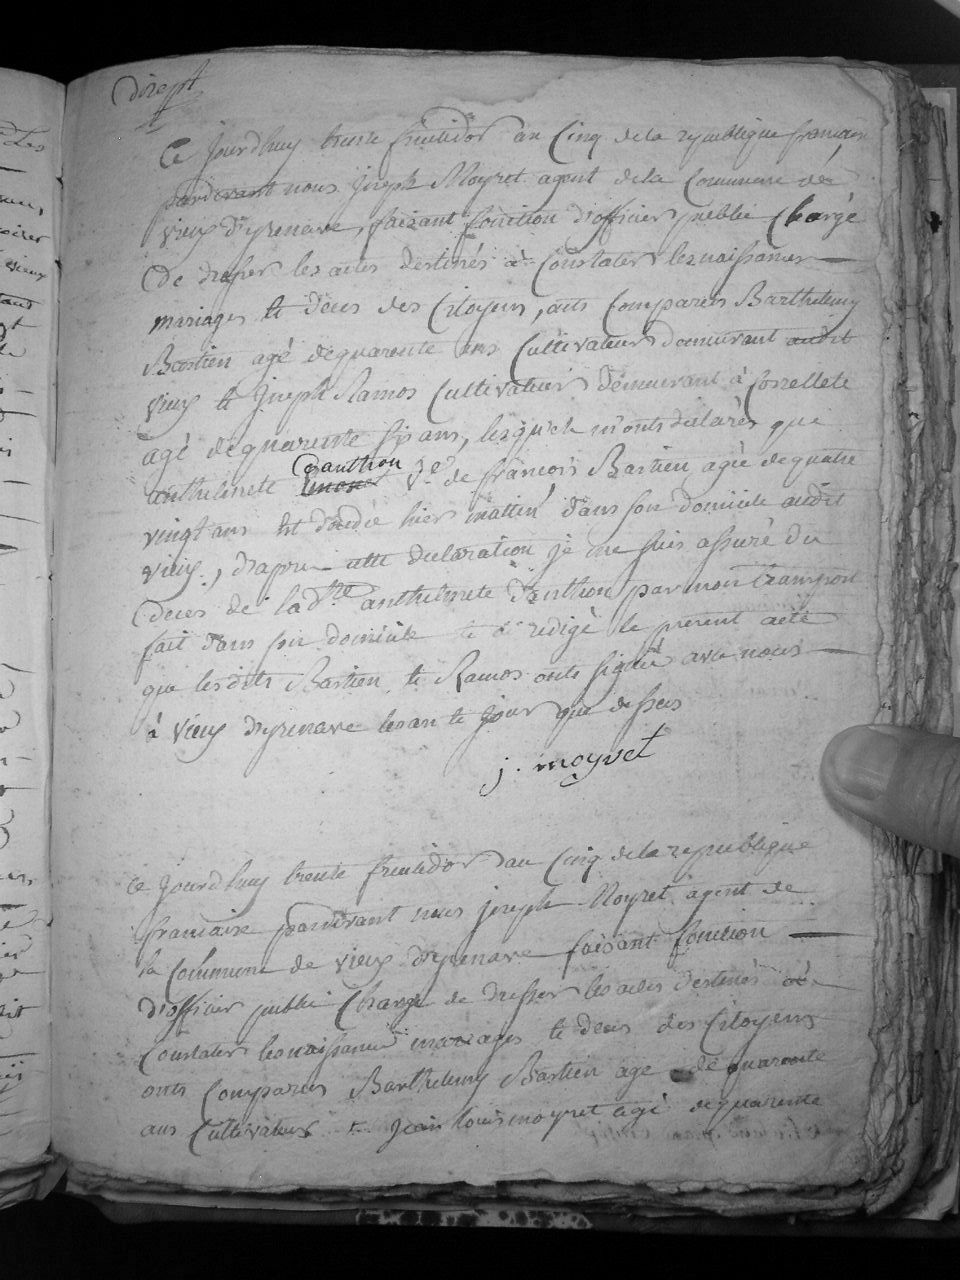 dix sept
Ce jourdhuy trente fructidor an Cinq de la republique francaise
pardevant nous joseph Moyret agent de la Commune de
vieux d'yzenave, faisant fonction d'officier public Chargé
De dresser les actes destinés à Constater les naissances
mariages et deces des Citoyens, onts Comparus Barthelemy
Bastien agé de quarente ans Cultivateur demeurant audit
vieux et Joseph Ramos Cultivateur demeurant à Corcellete
agé de quarente six ans, lesquels m'onts declarés que
anthelmete Danthon Ve de francois Bastien agée de quatre
vingt ans est décédée hier mattin dans son domicile audit
vieux, d'apres cette declaration je me suis assuré du
deces de la dte anthelmete Danthon par mon transport
fait dans son domicile et ai redigé le present acte
que lesdits Bastien et Ramos onts signé avec nous
à vieux d'yzenave les an et jour que dessus
j. moyret
Ce jourdhuy trente fructidor an Cinq de la republique
francaise pardevant nous joseph Moyret agent de
la Commune de vieux d'yzenave faisant fonction
d'officier public Chargé de dresser les actes destinés à
Constater les naissances mariages et deces des Citoyens
onts Comparus Barthelemy Bastien agé de quarente
ans Cultivateur et jean Louis moyret agé de quarente